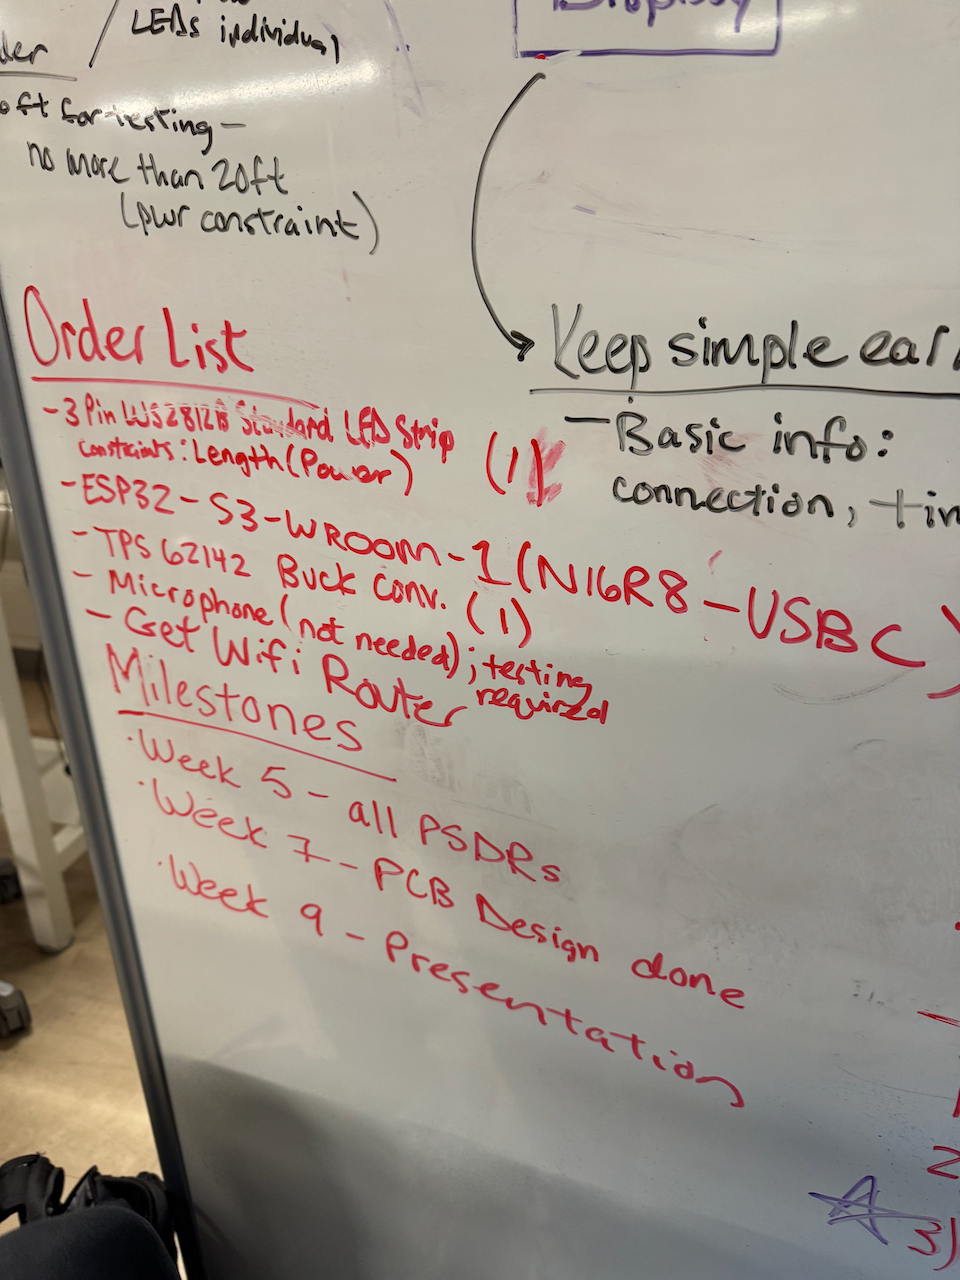 LEDs individual
Display
for testing –
no more than 20ft
(pwr constraint)
Order List
- 3 Pin WS2812B Standard LED Strip (1)
Constraints: Length (Power)
- ESP32-S3-WROOM-1 (N16R8-USBC)
- TPS 62142 Buck Conv. (1)
- Microphone (not needed); testing required
- Get Wifi Router
Milestones
· Week 5 - all PSDRs
· Week 7 - PCB Design done
· Week 9 - Presentation
Keep simple
- Basic info:
connection,
2
3)